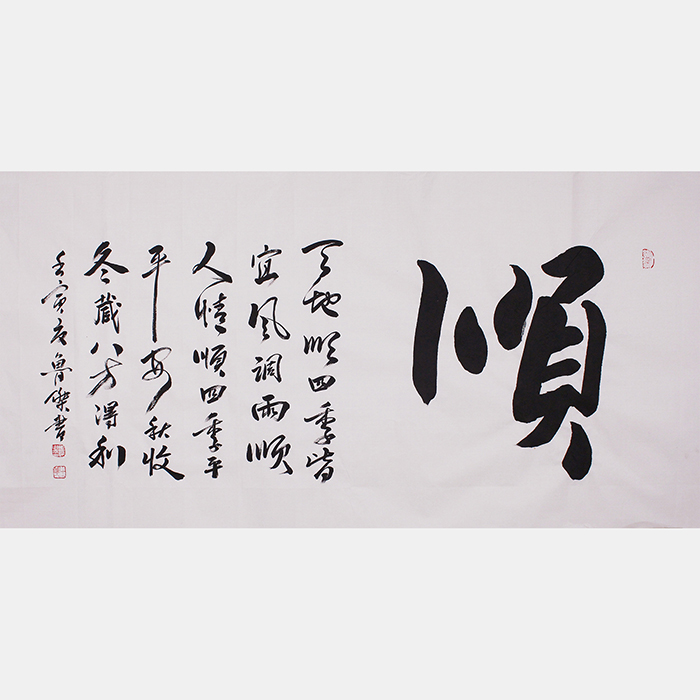 順
天地順四季皆
宜風調雨順
人情順四季平
平安秋收
冬藏八方得利
壬寅魯傑書